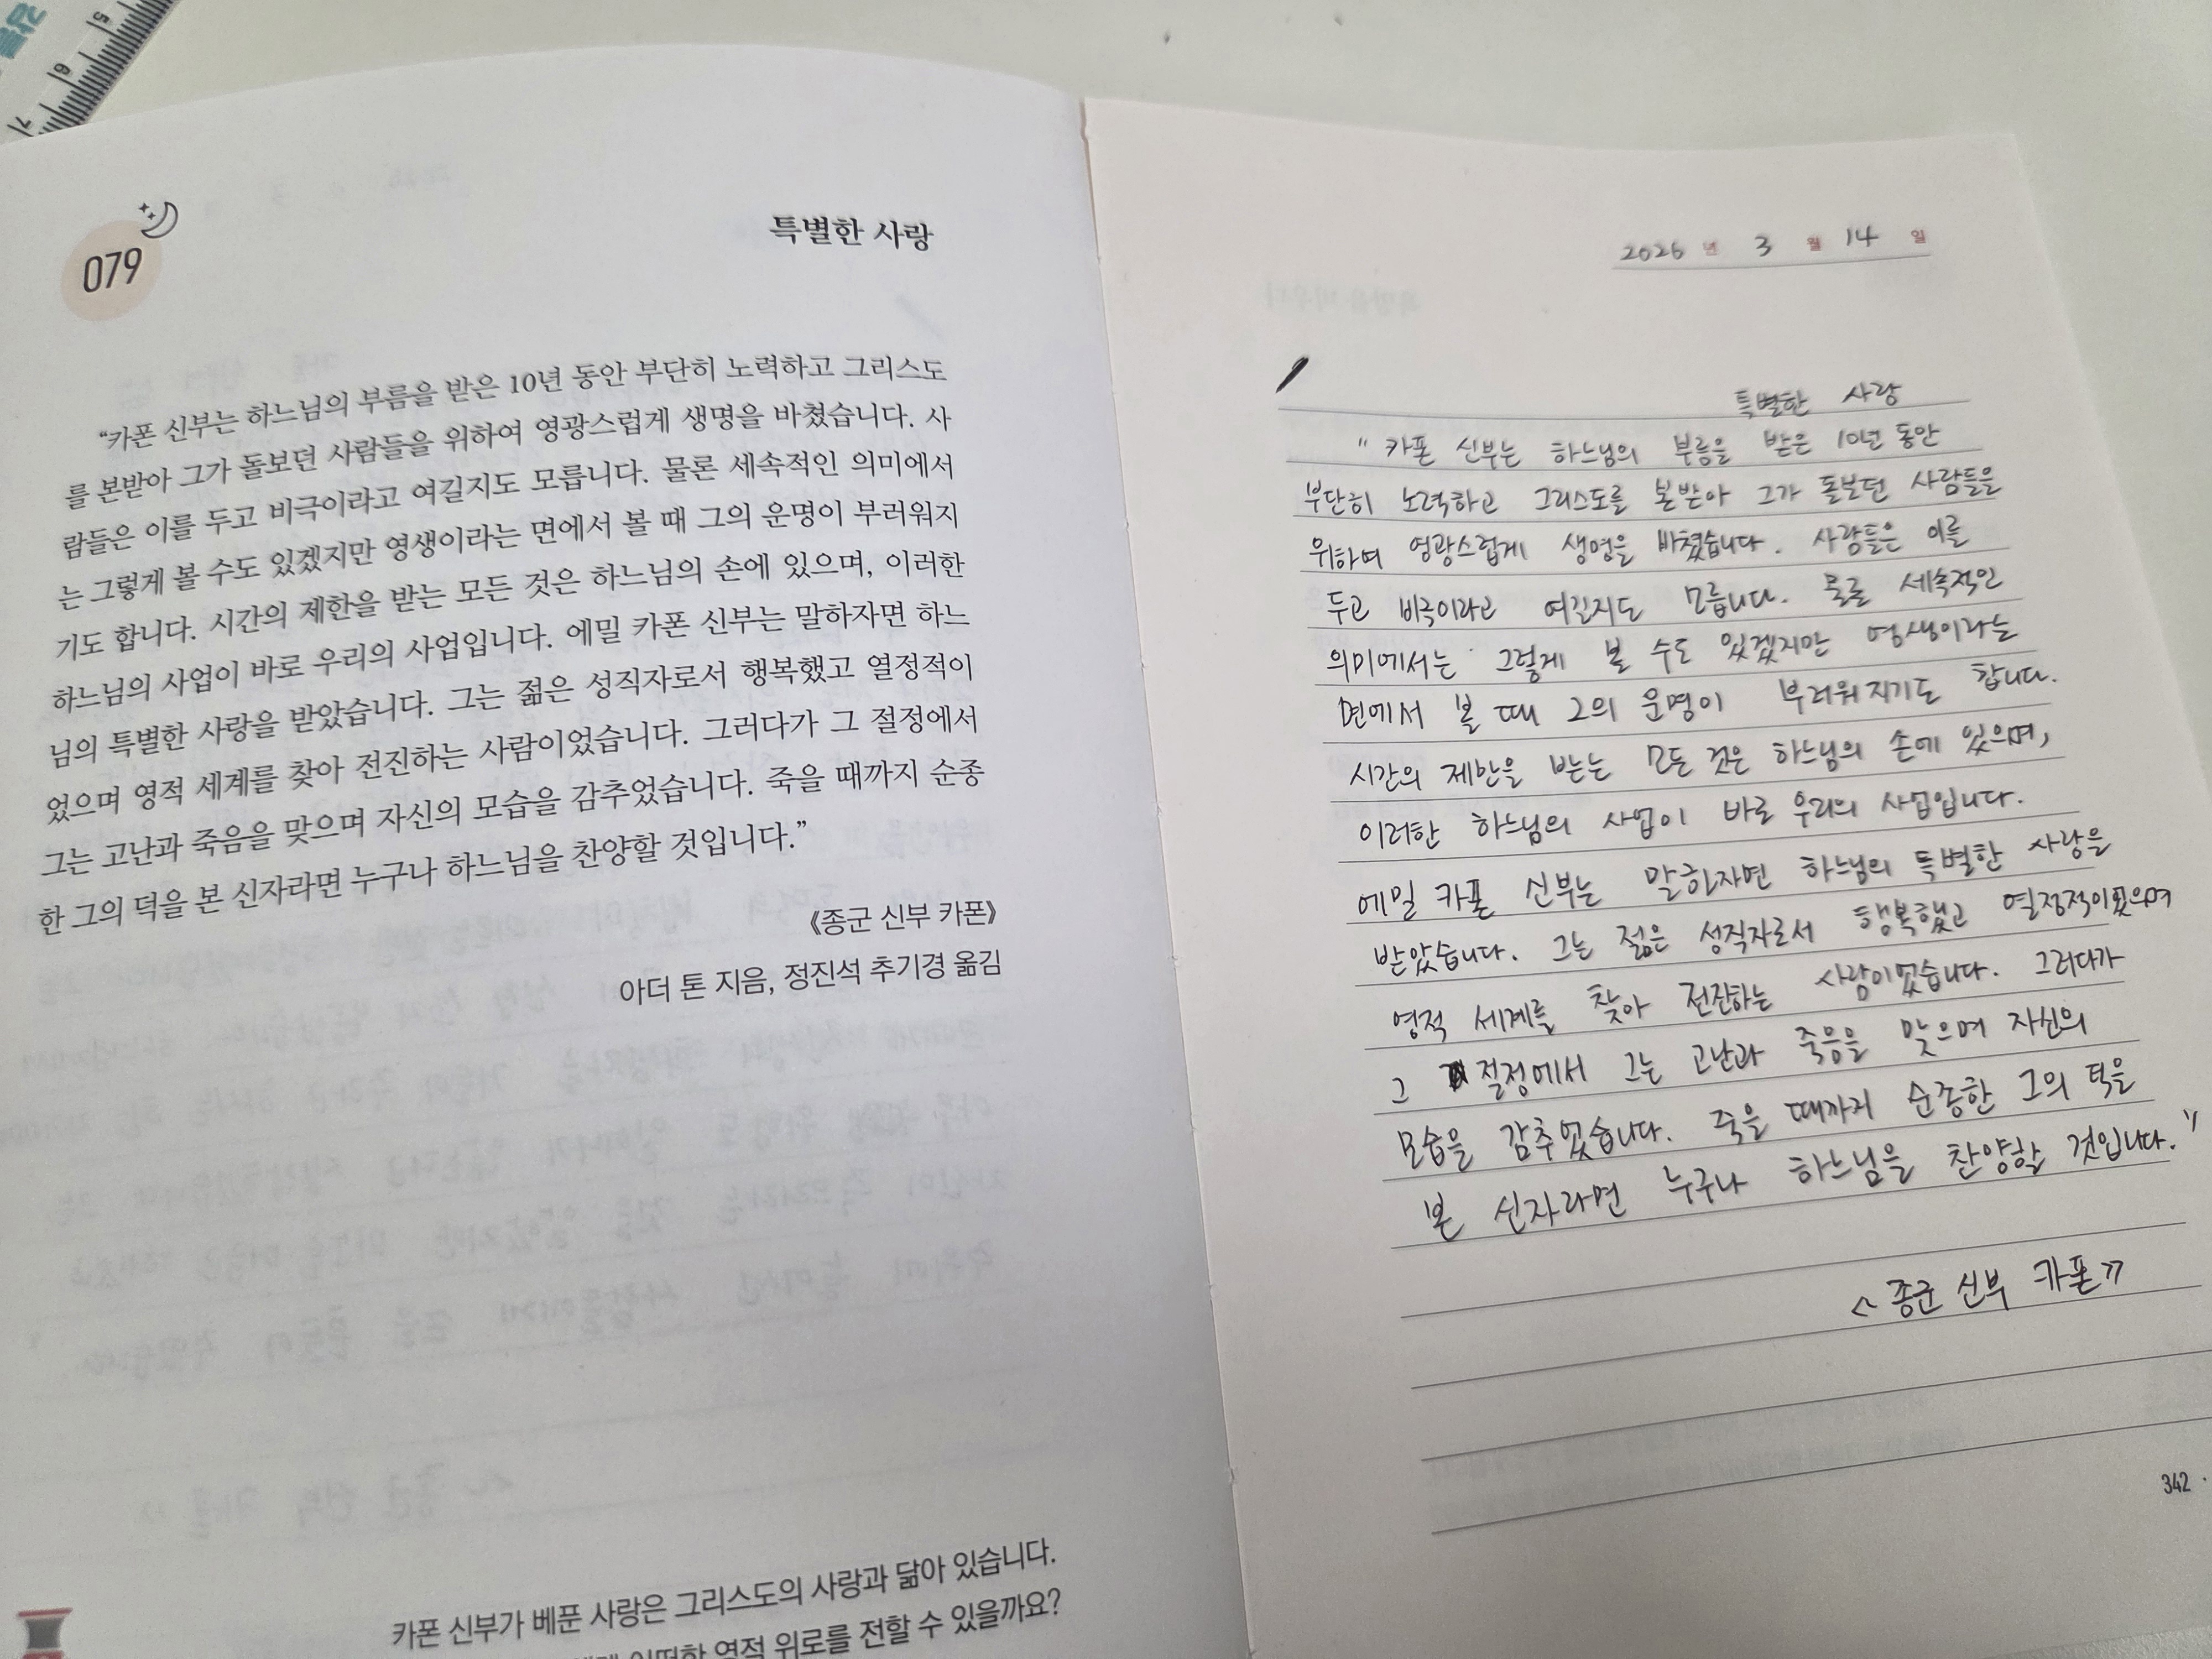 079
특별한 사랑
“카폰 신부는 하느님의 부름을 받은 10년 동안 부단히 노력하고 그리스도
를 본받아 그가 돌보던 사람들을 위하여 영광스럽게 생명을 바쳤습니다. 사
람들은 이를 두고 비극이라고 여길지도 모릅니다. 물론 세속적인 의미에서
는 그렇게 볼 수도 있겠지만 영생이라는 면에서 볼 때 그의 운명이 부러워지
기도 합니다. 시간의 제한을 받는 모든 것은 하느님의 손에 있으며, 이러한
하느님의 사업이 바로 우리의 사업입니다. 에밀 카폰 신부는 말하자면 하느
님의 특별한 사랑을 받았습니다. 그는 젊은 성직자로서 행복했고 열정적이
었으며 영적 세계를 찾아 전진하는 사람이었습니다. 그러다가 그 절정에서
그는 고난과 죽음을 맞으며 자신의 모습을 감추었습니다. 죽을 때까지 순종
한 그의 덕을 본 신자라면 누구나 하느님을 찬양할 것입니다.”
《종군 신부 카폰》
아더 톤 지음, 정진석 추기경 옮김
카폰 신부가 베푼 사랑은 그리스도의 사랑과 닮아 있습니다.
영적 위로를 전할 수 있을까요?
2026 년 3 월 14 일
특별한 사랑
“카폰 신부는 하느님의 부름을 받은 10년 동안
부단히 노력하고 그리스도를 본받아 그가 돌보던 사람들을
위하여 영광스럽게 생명을 바쳤습니다. 사람들은 이를
두고 비극이라고 여길지도 모릅니다. 물론 세속적인
의미에서는 그렇게 볼 수도 있겠지만 영생이라는
면에서 볼 때 그의 운명이 부러워지기도 합니다.
시간의 제한을 받는 모든 것은 하느님의 손에 있으며,
이러한 하느님의 사업이 바로 우리의 사업입니다.
에밀 카폰 신부는 말하자면 하느님의 특별한 사랑을
받았습니다. 그는 젊은 성직자로서 행복했고 열정적이었으며
영적 세계를 찾아 전진하는 사람이었습니다. 그러다가
그 절정에서 그는 고난과 죽음을 맞으며 자신의
모습을 감추었습니다. 죽을 때까지 순종한 그의 덕을
본 신자라면 누구나 하느님을 찬양할 것입니다.”
《종군 신부 카폰》
342